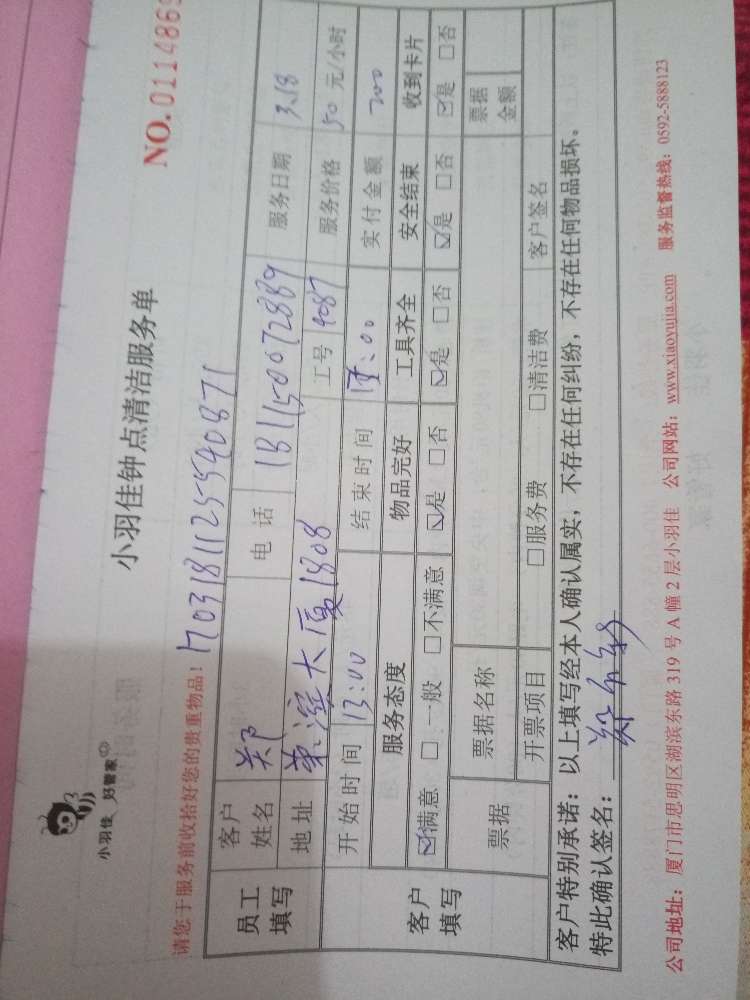 小羽佳 好管家
小羽佳钟点清洁服务单
NO.0114869
请您于服务前收拾好您的贵重物品！ 1703181125540871
员工填写
客户姓名 郑 电话 18150072889 服务日期 3.18
地址 大厦1808 工号 4087 服务价格 50 元/小时
客户填写
开始时间 13:00 结束时间 :00 实付金额 200
服务态度 物品完好 工具齐全 安全结束 收到卡片
☑满意 □一般 □不满意 ☑是 □否 ☑是 □否 ☑是 □否 ☑是 □否
票据 票据名称 票据金额
开票项目 □服务费 □清洁费 客户签名
客户特别承诺：以上填写经本人确认属实，不存在任何纠纷，不存在任何物品损坏。
特此确认签名：
公司地址：厦门市思明区湖滨东路 319 号 A 幢 2 层小羽佳 公司网站：www.xiaoyujia.com 服务监督热线：0592-5888123